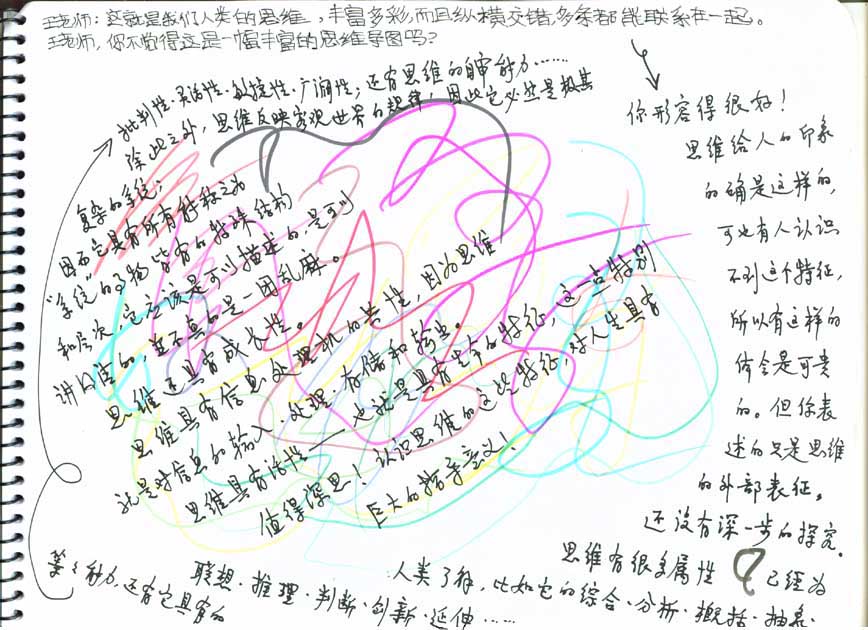 王老师：这就是我们人类的思维，丰富多彩，而且纵横交错，多条都能联系在一起。
王老师，你不觉得这是一幅丰富的思维导图吗？
你形容得很好！
思维给人的印象
的确是这样的，
可也有人认识
不到这个特征，
所以有这样的
体会是可贵
的。但你表
述的只是思维
的外部表征。
还没有深一步的探究。
思维有很多属性 已经为
人类了解，比如它的综合·分析·概括·抽象·
等等能力，还有它具有的
联想·推理·判断·创新·延伸……
批判性·灵活性·敏捷性·广阔性；还有思维的自审能力……
除此之外，思维反映客观世界的规律，因此它必然是极其
复杂的系统；
因而它具有所有被称之为
“系统”的事物皆有的特殊结构
和层次，它应该是可以描述的，是可以
讲得清的，并不真的是一团乱麻。
思维还具有成长性。
思维具有信息处理机的共性，因为思维
就是对信息的输入、处理、存储和输出。
思维具有活性——也就是具有生命的特征，这一点特别
值得深思！认识思维的这些特征，对人生具有
巨大的指导意义！